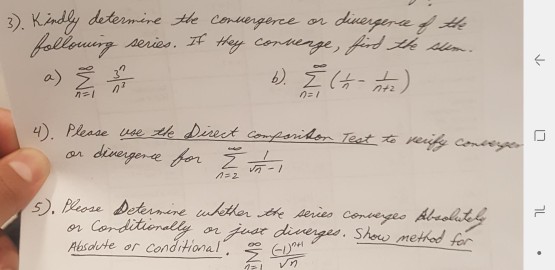 3). Kindly determine the convergence or divergence of the
following series. If they converge, find the sum.
a) ∞ Σ n=1 3^n / n^2 b). ∞ Σ n=1 (1/n - 1/n+2)
4). Please use the Direct comparison Test to verify convergen
or divergence for ∞ Σ n=2 1 / √n - 1
5). Please Determine whether the series converges Absolutely
or Conditionally or just diverges. Show method for
Absolute or conditional. ∞ Σ n=1 (-1)^n+1 / √n